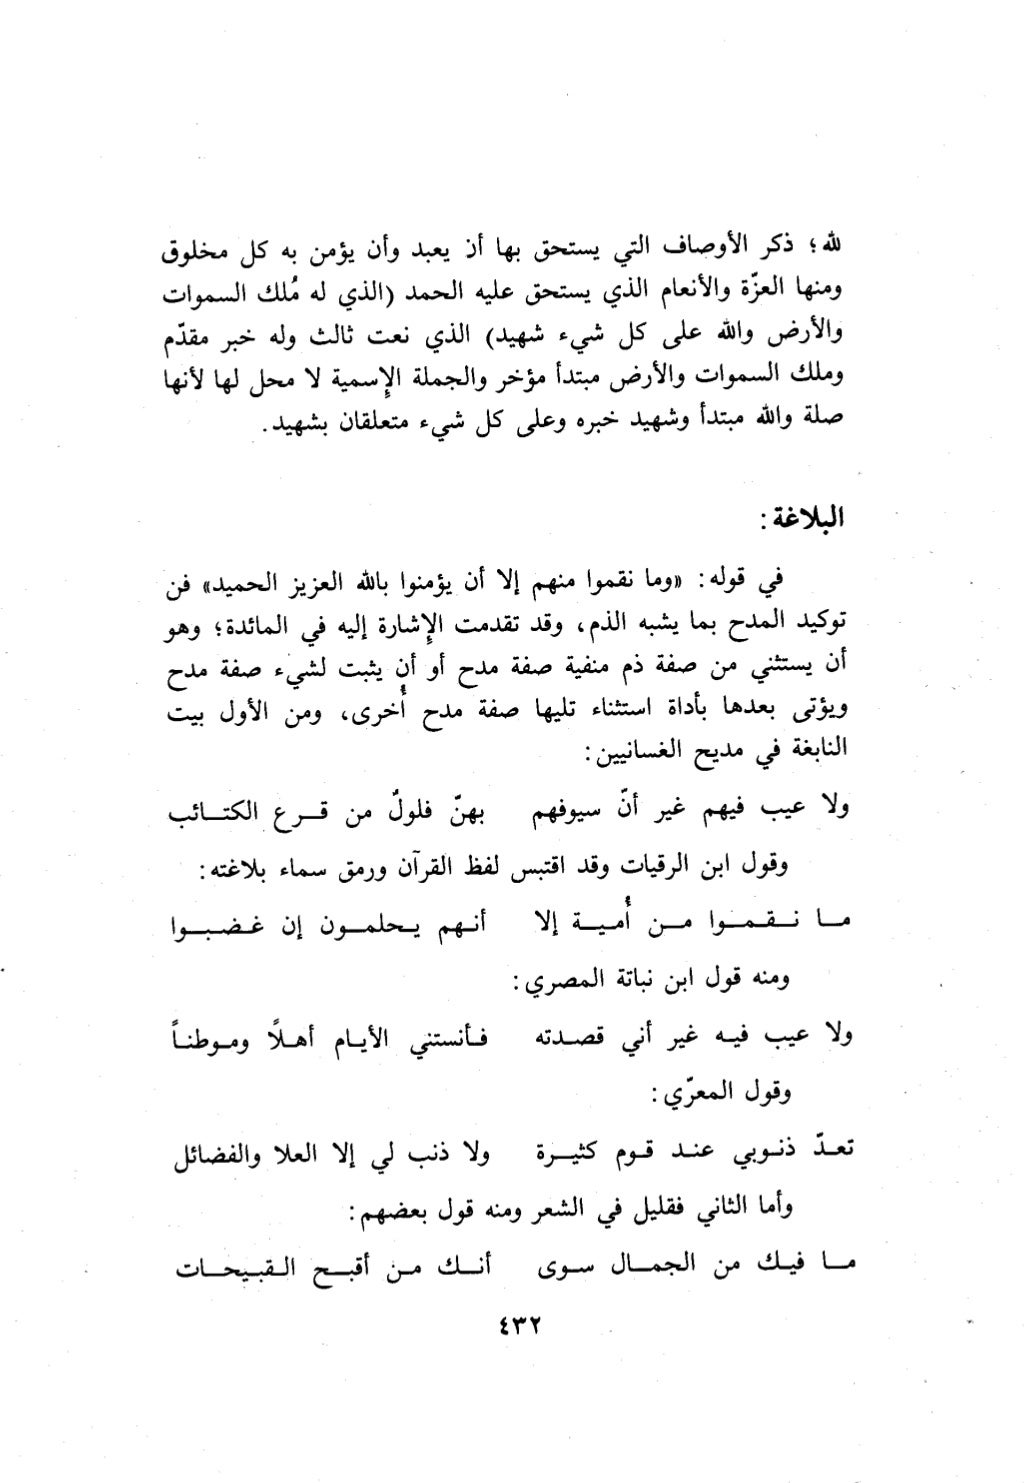 لله؛ ذكر الأوصاف التي يستحق بها أن يعبد وأن يؤمن به كل مخلوق
ومنها العزّة والأنعام الذي يستحق عليه الحمد (الذي له مُلك السموات
والأرض والله على كل شيء شهيد) الذي نعت ثالث وله خبر مقدّم
وملك السموات والأرض مبتدأ مؤخر والجملة الإسمية لا محل لها لأنها
صلة والله مبتدأ وشهيد خبره وعلى كل شيء متعلقان بشهيد.
البلاغة:
في قوله: «وما نقموا منهم إلا أن يؤمنوا بالله العزيز الحميد» فن
توكيد المدح بما يشبه الذم، وقد تقدمت الإشارة إليه في المائدة؛ وهو
أن يستثني من صفة ذم منفية صفة مدح أو أن يثبت لشيء صفة مدح
ويؤتى بعدها بأداة استثناء تليها صفة مدح أُخرى، ومن الأول بيت
النابغة في مديح الغسانيين:
ولا عيب فيهم غير أنّ سيوفهم بهنّ فلولٌ من قـرع الكتـائب
وقول ابن الرقيات وقد اقتبس لفظ القرآن ورمق سماء بلاغته:
مـا نـقـمـوا مـن أُميـة إلا أنـهم يـحلمـون إن غـضـبـوا
ومنه قول ابن نباتة المصري:
ولا عيب فيـه غير أني قصـدته فـأنستني الأيـام أهـلًا ومـوطنـاً
وقول المعرّي:
تعـدّ ذنـوبي عنـد قـوم كثيـرة ولا ذنب لي إلا العلا والفضائل
وأما الثاني فقليل في الشعر ومنه قول بعضهم:
مـا فيـك من الجمـال سـوى أنـك مـن أقبـح القبيحـات
٤٣٢